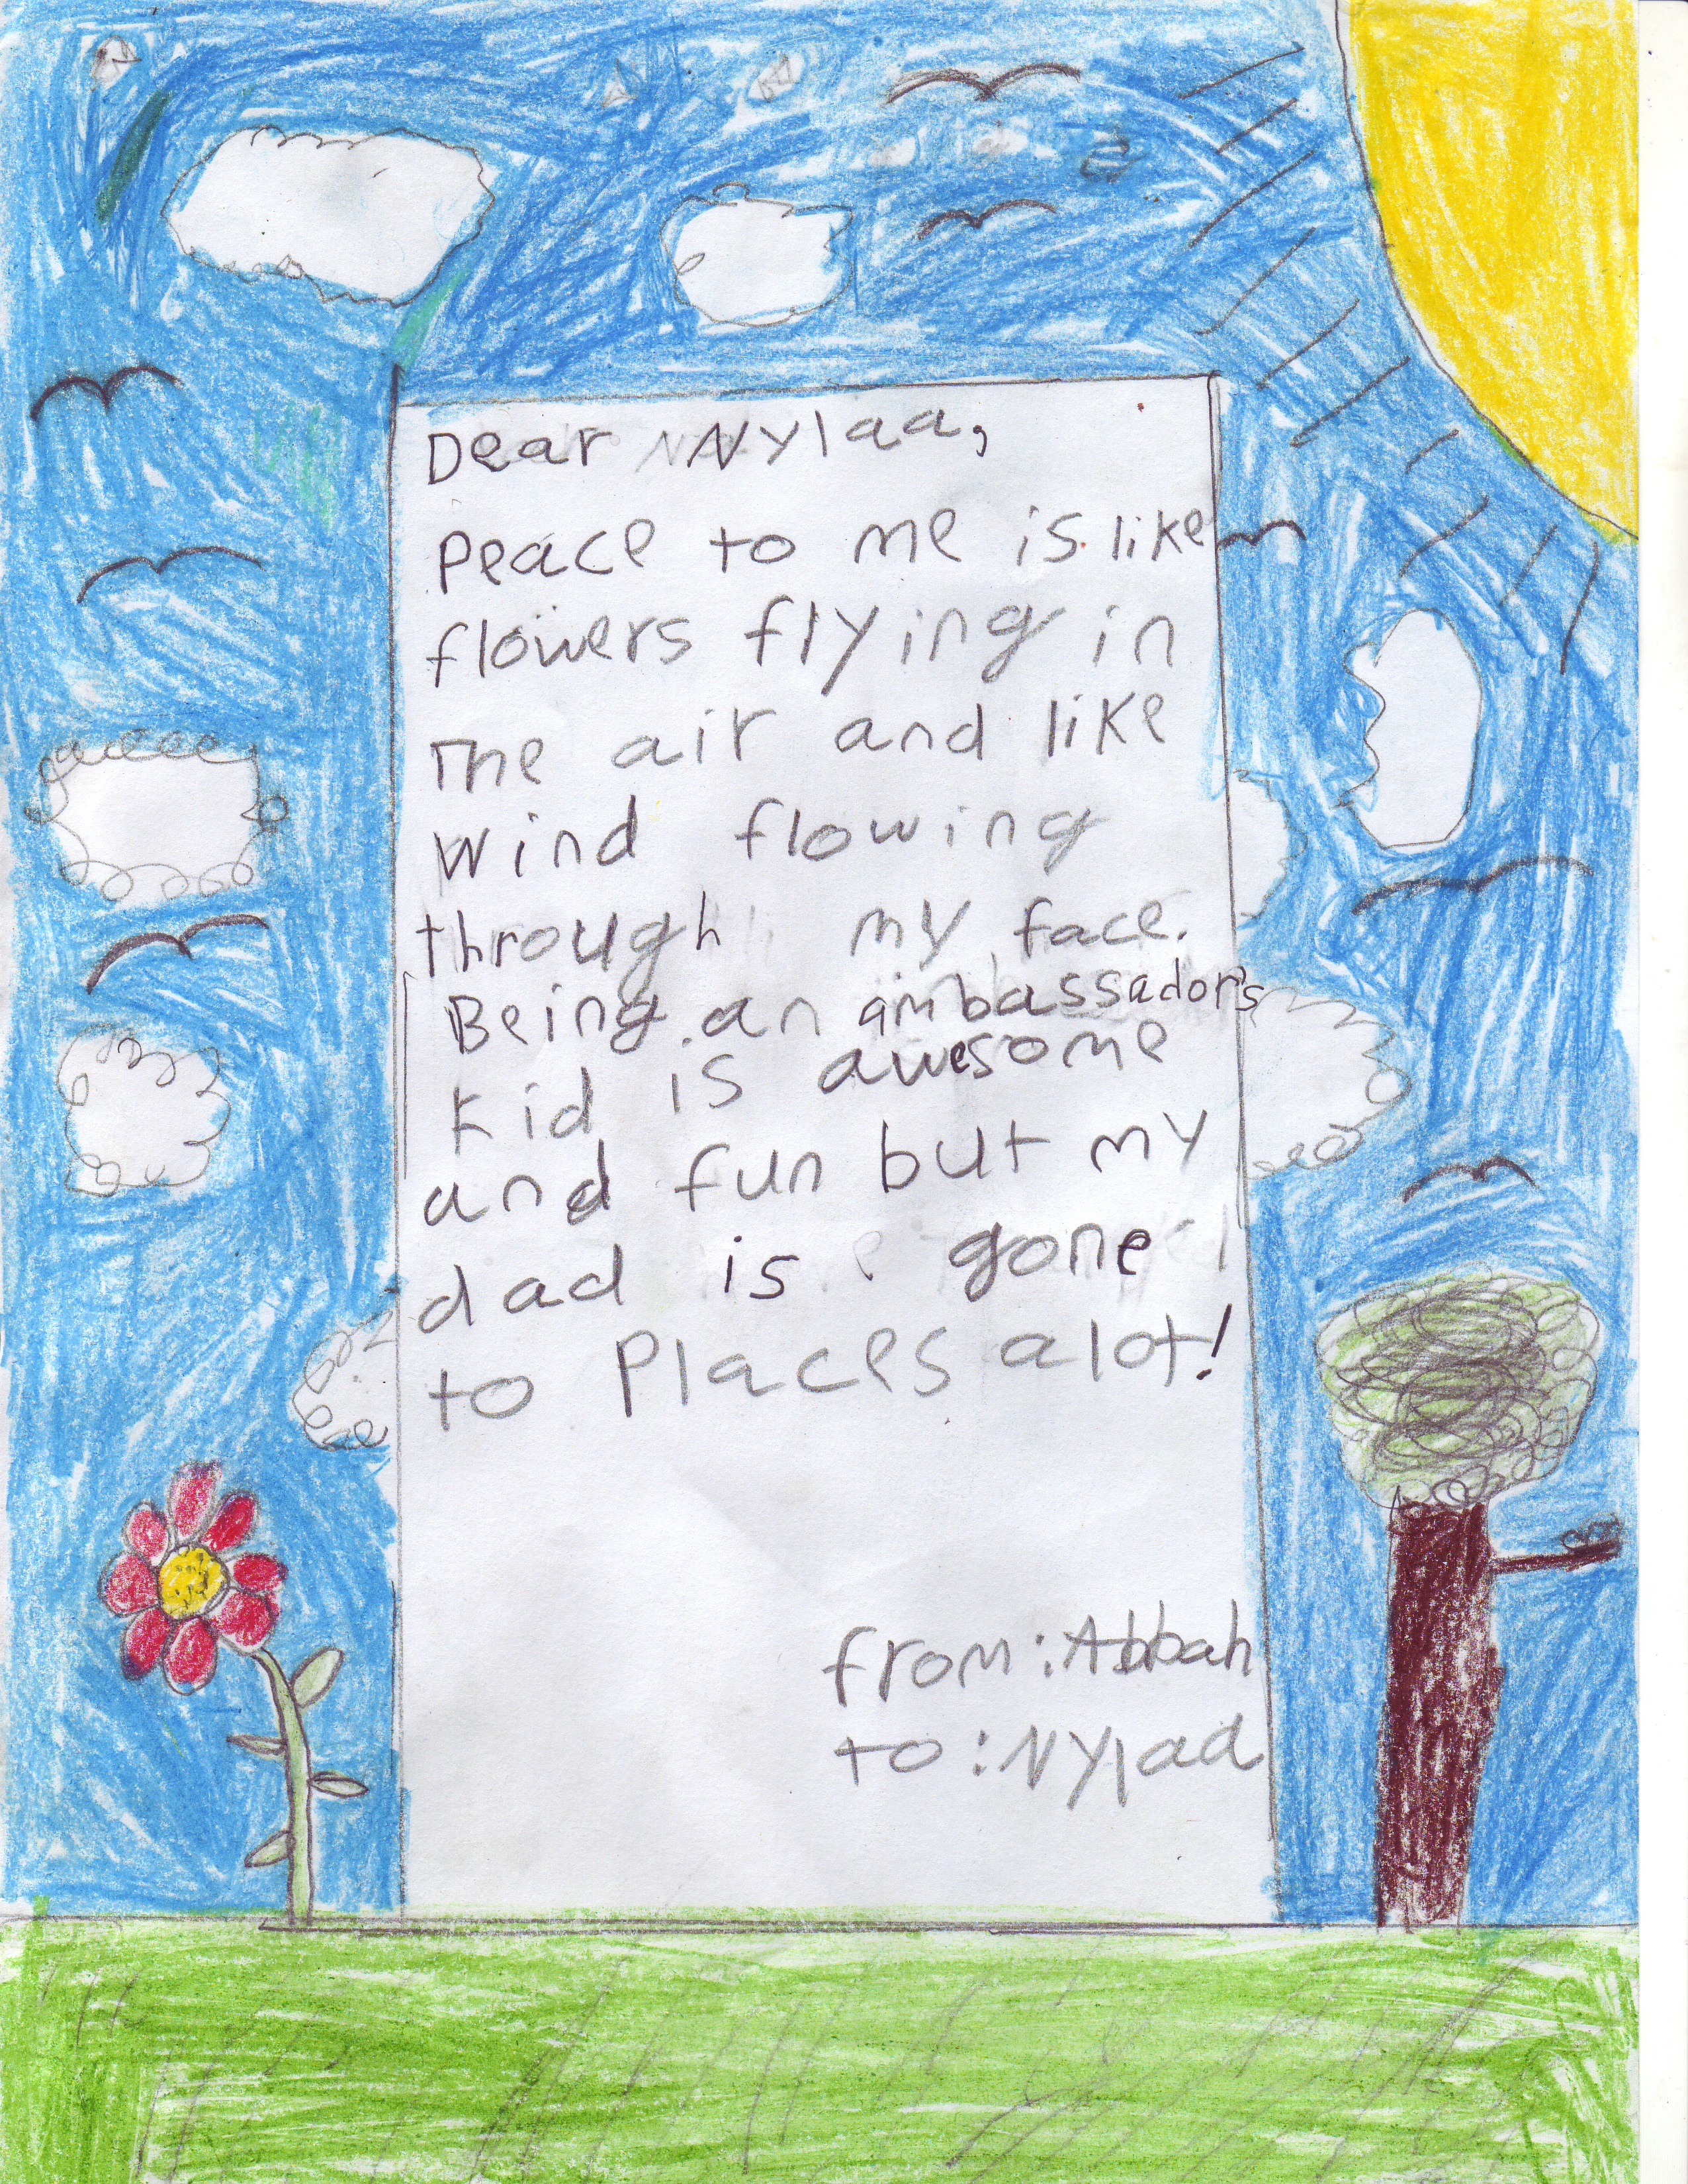 Dear Nylaa,
Peace to me is like
flowers flying in
The air and like
Wind flowing
through my face.
Being an ambassador's
Kid is awesome
and fun but my
dad is gone
to Places alot!
from: Abbah
to: Nylaa